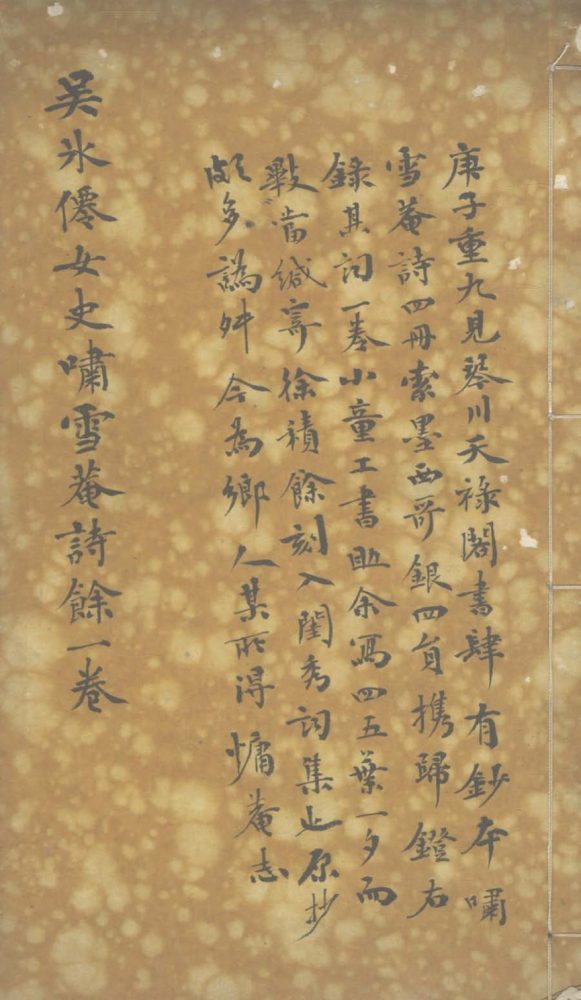 庚子重九見琴川天祿閣書肆有鈔本嘯
雪菴詩四冊索墨西哥銀四員携歸鐙右
錄其詞一卷小童工書助余寫四五葉一夕而
斁當緘寄徐積餘刻入閨秀詞集也原抄
頗多譌舛今為鄉人某所得慵菴志
吴氷僊女史嘯雪菴詩餘一卷